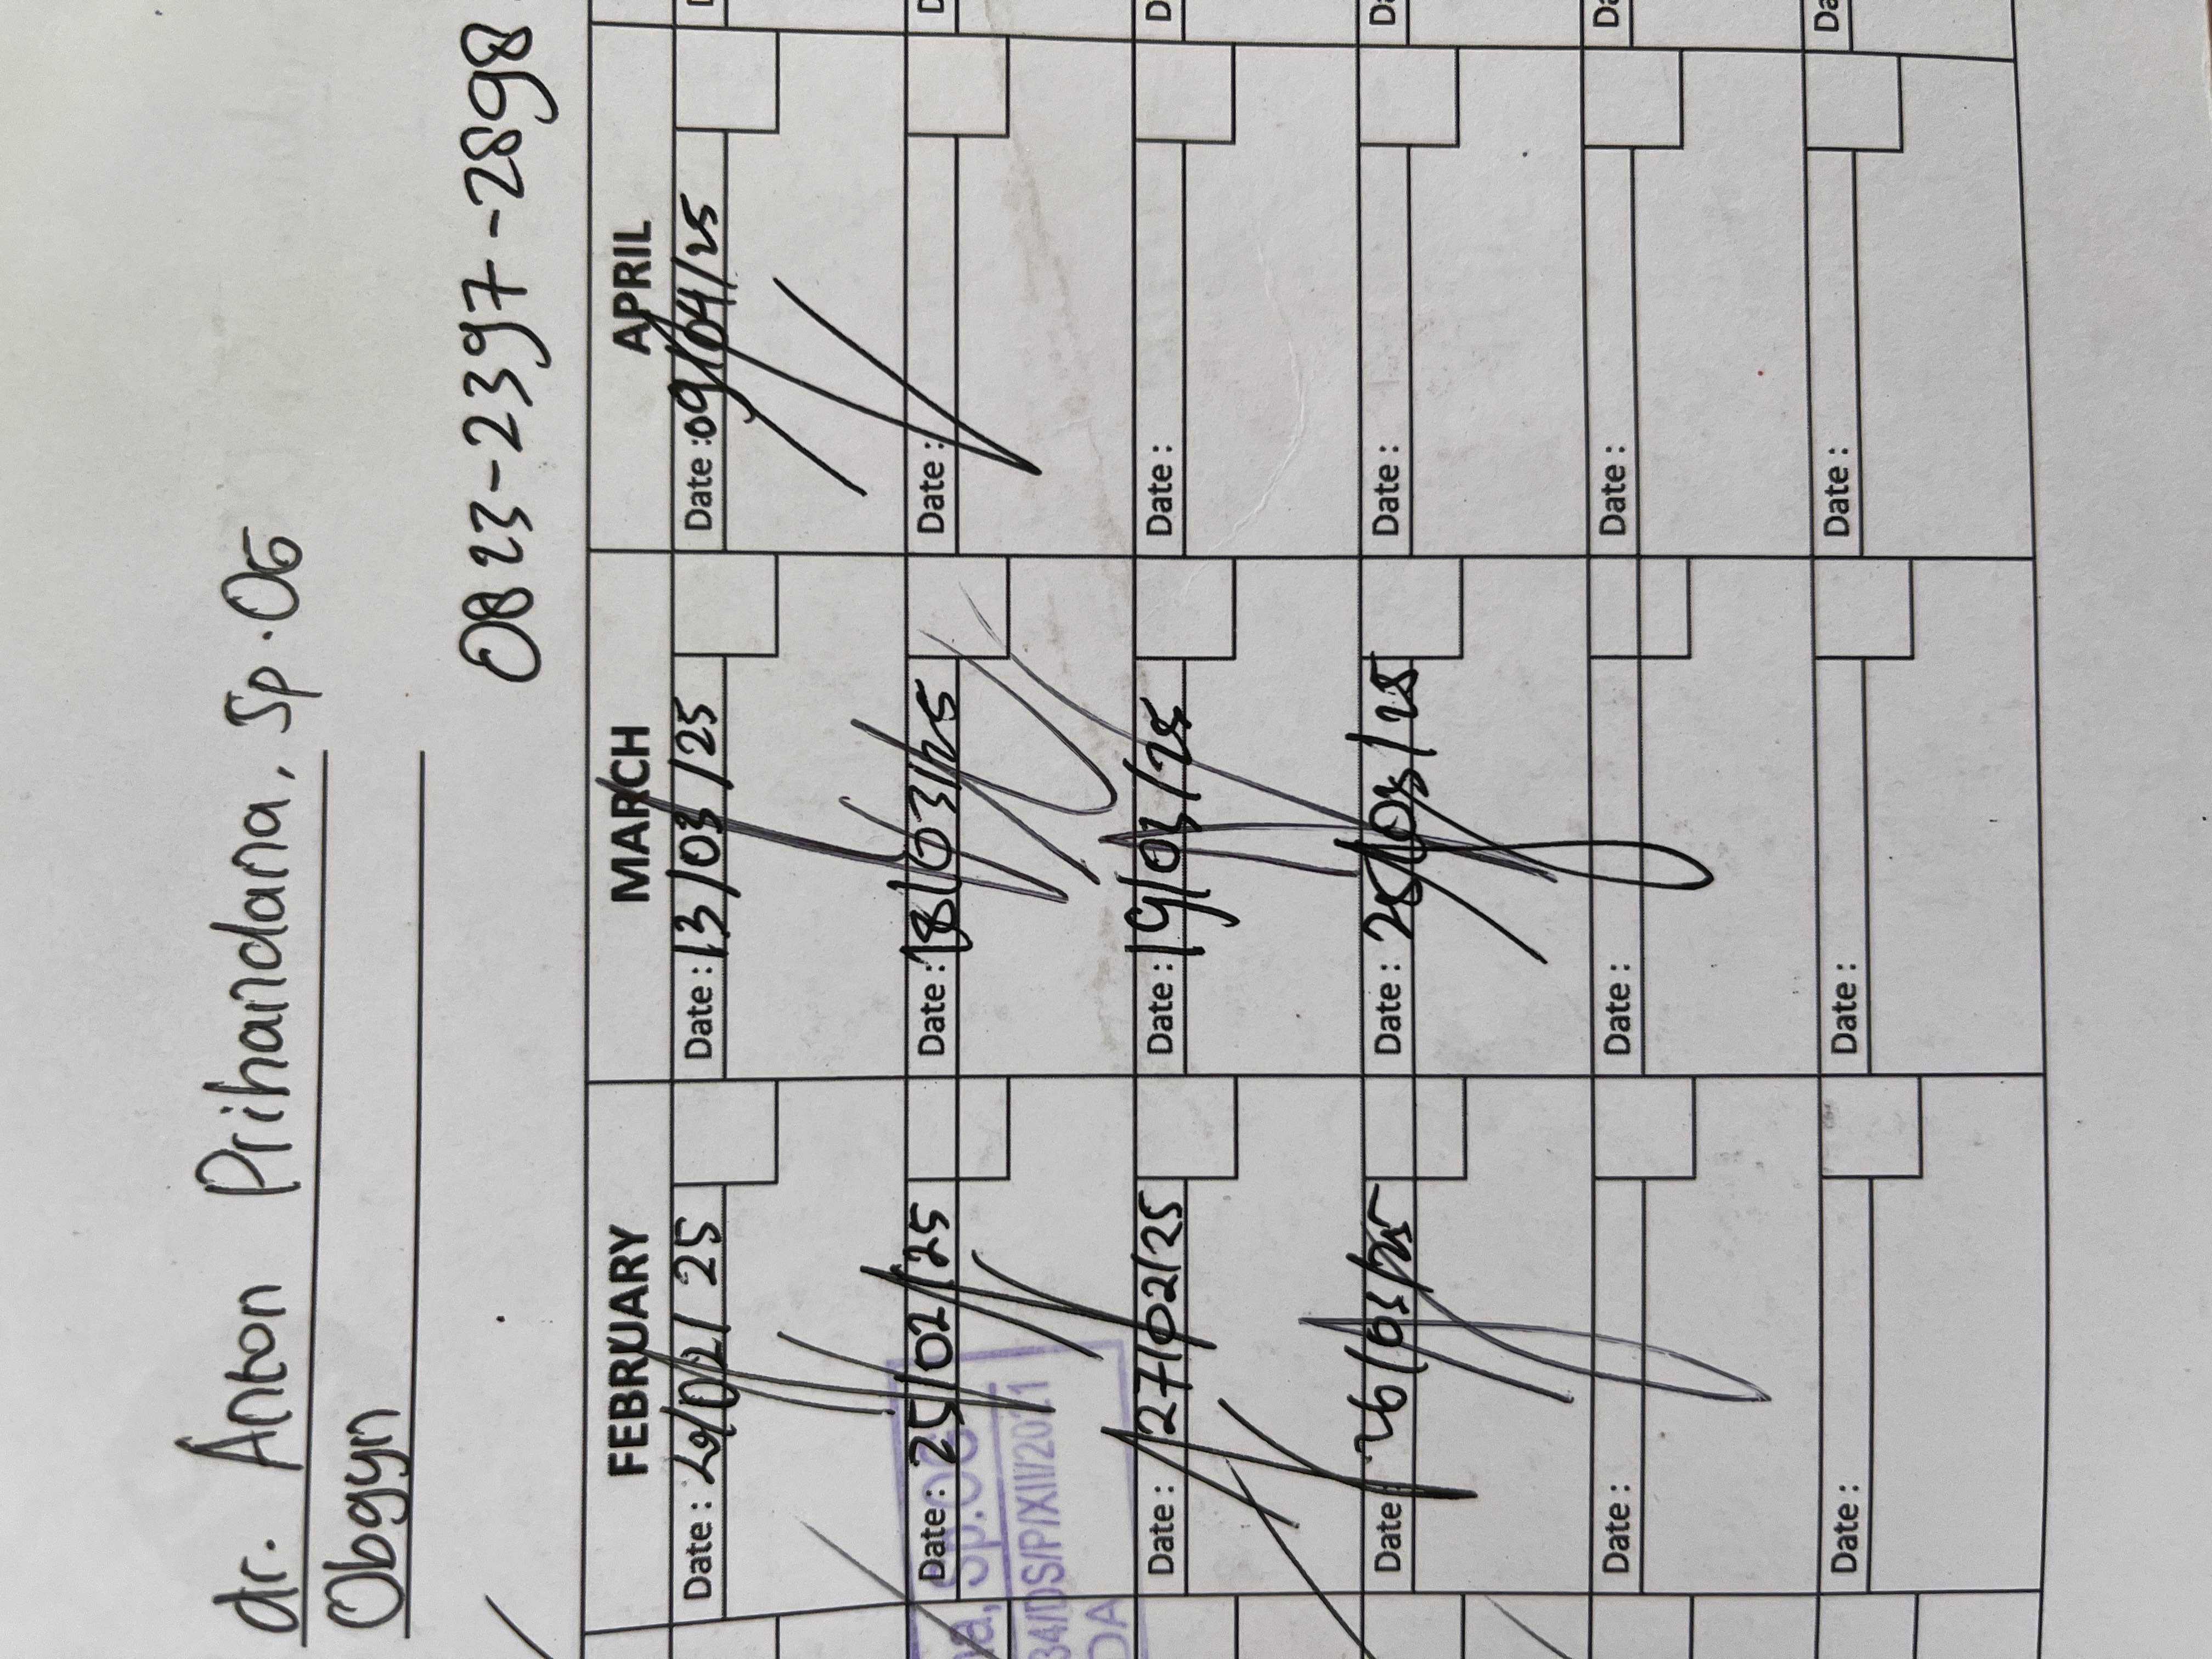 dr. Anton Prihandana, Sp.OG
Obgyn
0823-2397-2898
FEBRUARY MARCH APRIL
Date : /02/25 Date : 13/03/25 Date : 09/04/25
Date : 25/02/25 Date : 18/03/25 Date :
Date : 27/02/25 Date : 19/03/25 Date :
Date : 26/03/25 Date : 25/03/25 Date :
Date : Date : Date :
Date : Date : Date :
na, Sp.OG
34/DS/P/XII/2021
DA